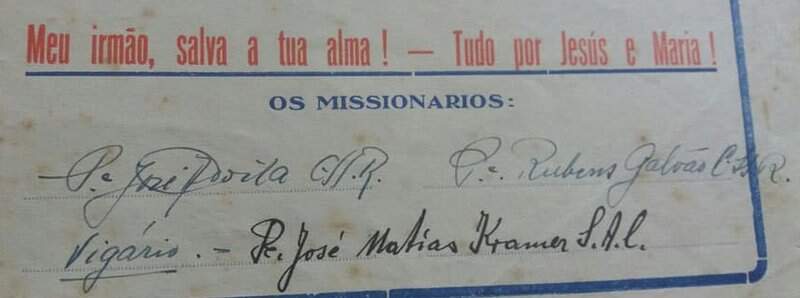 Meu irmão, salva a tua alma! — Tudo por Jesús e Maria!
OS MISSIONARIOS:
P.e José C.SS.R. P.e Rubens Galvão C.SS.R.
Vigário. – Pe. José Matias Kramer S.A.C.